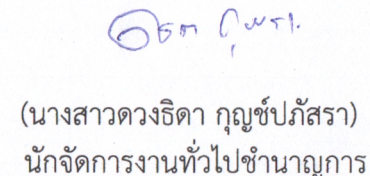 (นางสาวดวงธิดา กุญช์ปภัสรา)
นักจัดการงานทั่วไปชำนาญการ